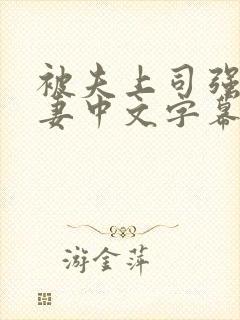 被夫上司强
妻中文字幕
游金萍